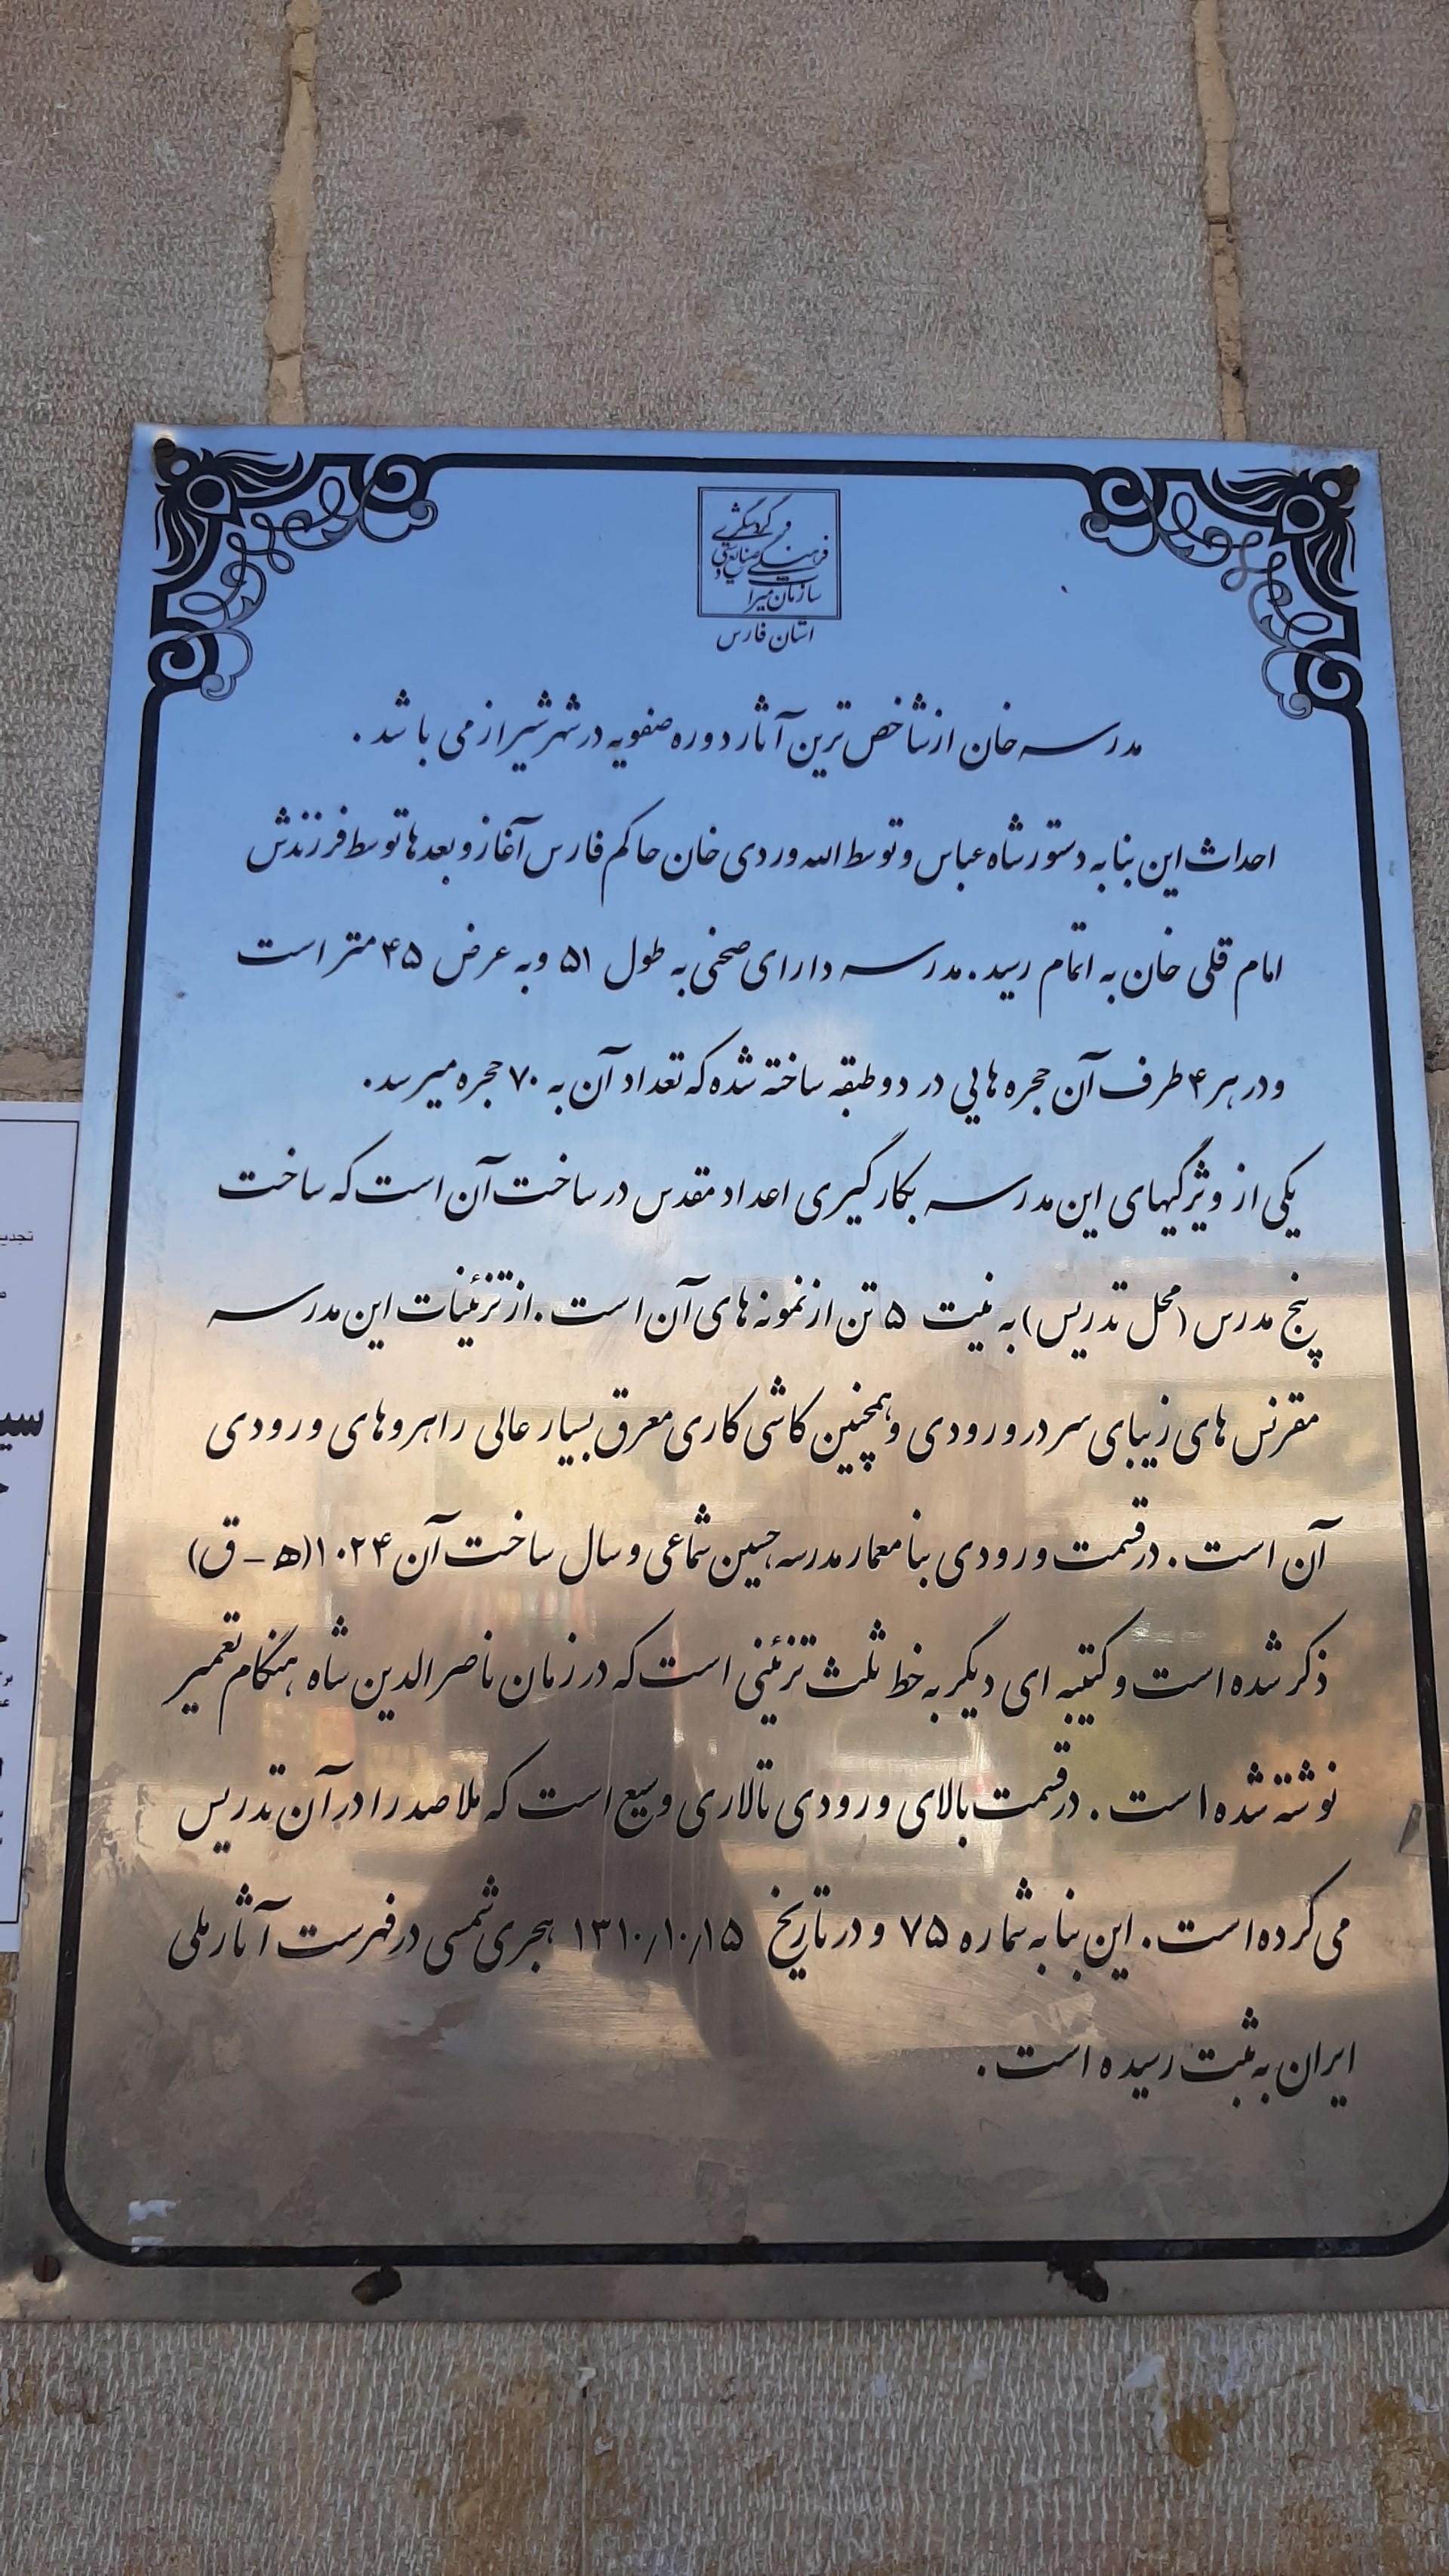 سازمان میراث
فرهنگی صنایع دستی
و گردشگری
استان فارس
مدرسه خان از شاخص ترین آثار دوره صفویه در شهر شیراز می باشد .
احداث این بنا به دستور شاه عباس و توسط الله وردی خان حاکم فارس آغاز و بعدها توسط فرزندش
امام قلی خان به اتمام رسید . مدرسه دارای صحنی به طول ۵۱ و به عرض ۴۵ متر است
و در هر ۴ طرف آن حجره هایی در دو طبقه ساخته شده که تعداد آن به ۷۰ حجره میرسد .
یکی از ویژگیهای این مدرسه بکارگیری اعداد مقدس در ساخت آن است که ساخت
پنج مدرس (محل تدریس) به نیت ۵ تن از نمونه های آن است . از تزئینات این مدرسه
مقرنس های زیبای سردر ورودی و همچنین کاشی کاری معرق بسیار عالی راهروهای ورودی
آن است . در قسمت ورودی بنا معمار مدرسه حسین شماعی و سال ساخت آن ۱۰۲۴ (ه - ق)
ذکر شده است و کتیبه ای دیگر به خط ثلث تزئینی است که در زمان ناصرالدین شاه هنگام تعمیر
نوشته شده است . در قسمت بالای ورودی تالاری وسیع است که ملاصدرا در آن تدریس
می کرده است . این بنا به شماره ۷۵ و در تاریخ ۱۳۱۰/۱۰/۱۵ هجری شمسی در فهرست آثار ملی
ایران به ثبت رسیده است .